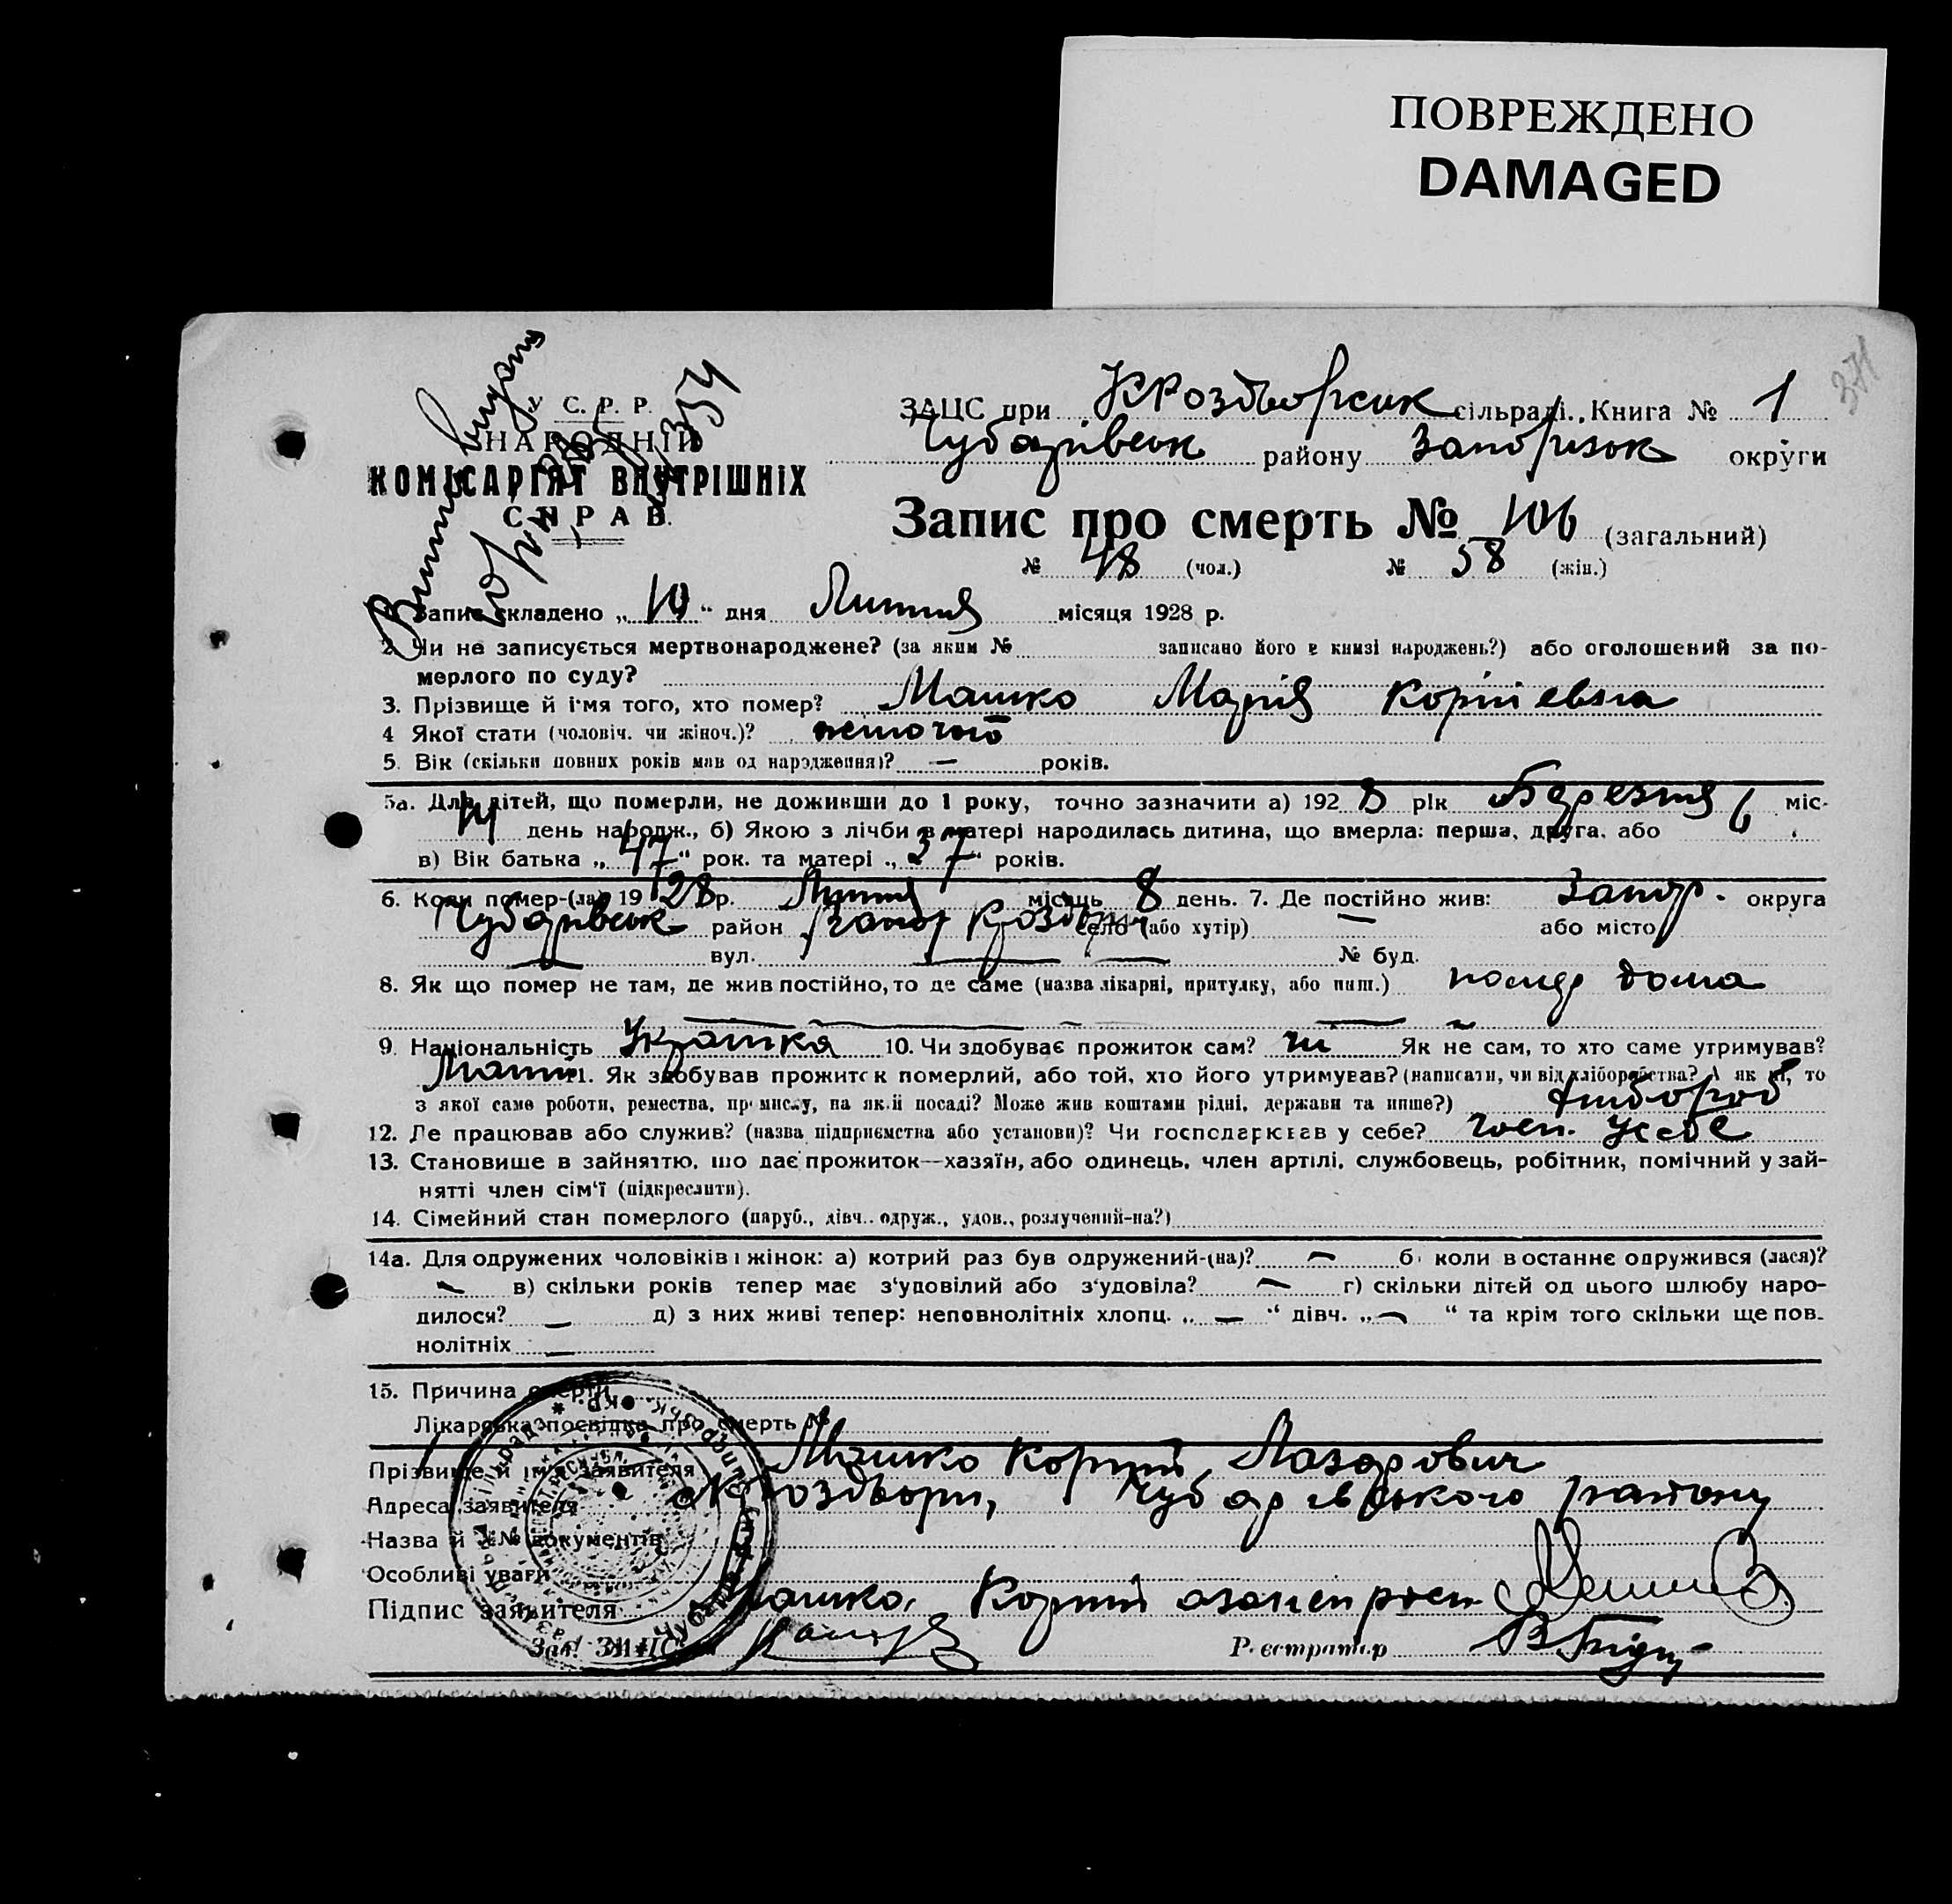 ПОВРЕЖДЕНО
DAMAGED
371
У С. Р. Р.
НАРОДНІЙ
КОМІСАРІЯТ ВНУТРІШНІХ
СПРАВ.
ЗАЦС при сільраді. Книга № 1
Чубарівськ району Запорізьк округи
Запис про смерть № 106 (загальний)
№ 48 (чол.) № 58 (жін.)
Запис складено „10“ дня Липня місяця 1928 р.
2. Чи не записується мертвонароджене? (за яким № записано його в книзі народжень?) або оголошений за по-
мерлого по суду?
3. Прізвище й імя того, хто помер? Машко Марія Корніевна
4 Якої стати (чоловіч. чи жіноч.)? жіночої
5. Вік (скільки повних років мав од народження)? — років.
5а. Для дітей, що померли, не доживши до 1 року, точно зазначити а) 1928 рік Березня міс-
день народж., б) Якою з лічби в матері народилась дитина, що вмерла: перша, друга, або 6
в) Вік батька „47“ рок. та матері „37“ років.
6. Коли помер-(ла) 1928 р. Липня місяць 8 день. 7. Де постійно жив: Запор. округа
Чубарівськ район село (або хутір) — або місто
— вул. — — № буд.
8. Як що помер не там, де жив постійно, то де саме (назва лікарні, притулку, або инш.) помер дома
9. Національність Українка 10. Чи здобуває прожиток сам? ні Як не сам, то хто саме утримував?
11. Як здобував прожиток померлий, або той, хто його утримував? (написати, чи від хліборобства? А як ні, то
з якої саме роботи, ремества, промислу, на якій посаді? Може жив коштами рідні, держави та инше?) хлібороб
12. Де працював або служив? (назва підприємства або установи)? Чи господарював у себе? госп. у себе
13. Становище в зайняттю, що дає прожиток—хазяїн, або одинець, член артілі, службовець, робітник, помічний у зай-
нятті член сім'ї (підкреслити).
14. Сімейний стан померлого (паруб., дівч., одруж., удов., розлучений-на?)
14а. Для одружених чоловіків і жінок: а) котрий раз був одружений-(на)? — б) коли в останнє одружився (лася)?
— в) скільки років тепер має з'удовілий або з'удовіла? — г) скільки дітей од цього шлюбу наро-
дилося? — д) з них живі тепер: неповнолітніх хлопц. „—“ дівч. „—“ та крім того скільки ще пов-
нолітніх —
15. Причина смерти
Лікарська посвідка про смерть №
Прізвище й ім'я заявителя Машко Корній Лазарович
Адреса заявителя Чубарівського району
Назва й №№ документів
Особливі уваги
Підпис заявителя Машко Корній
Зав. ЗАЦС Реєстратор